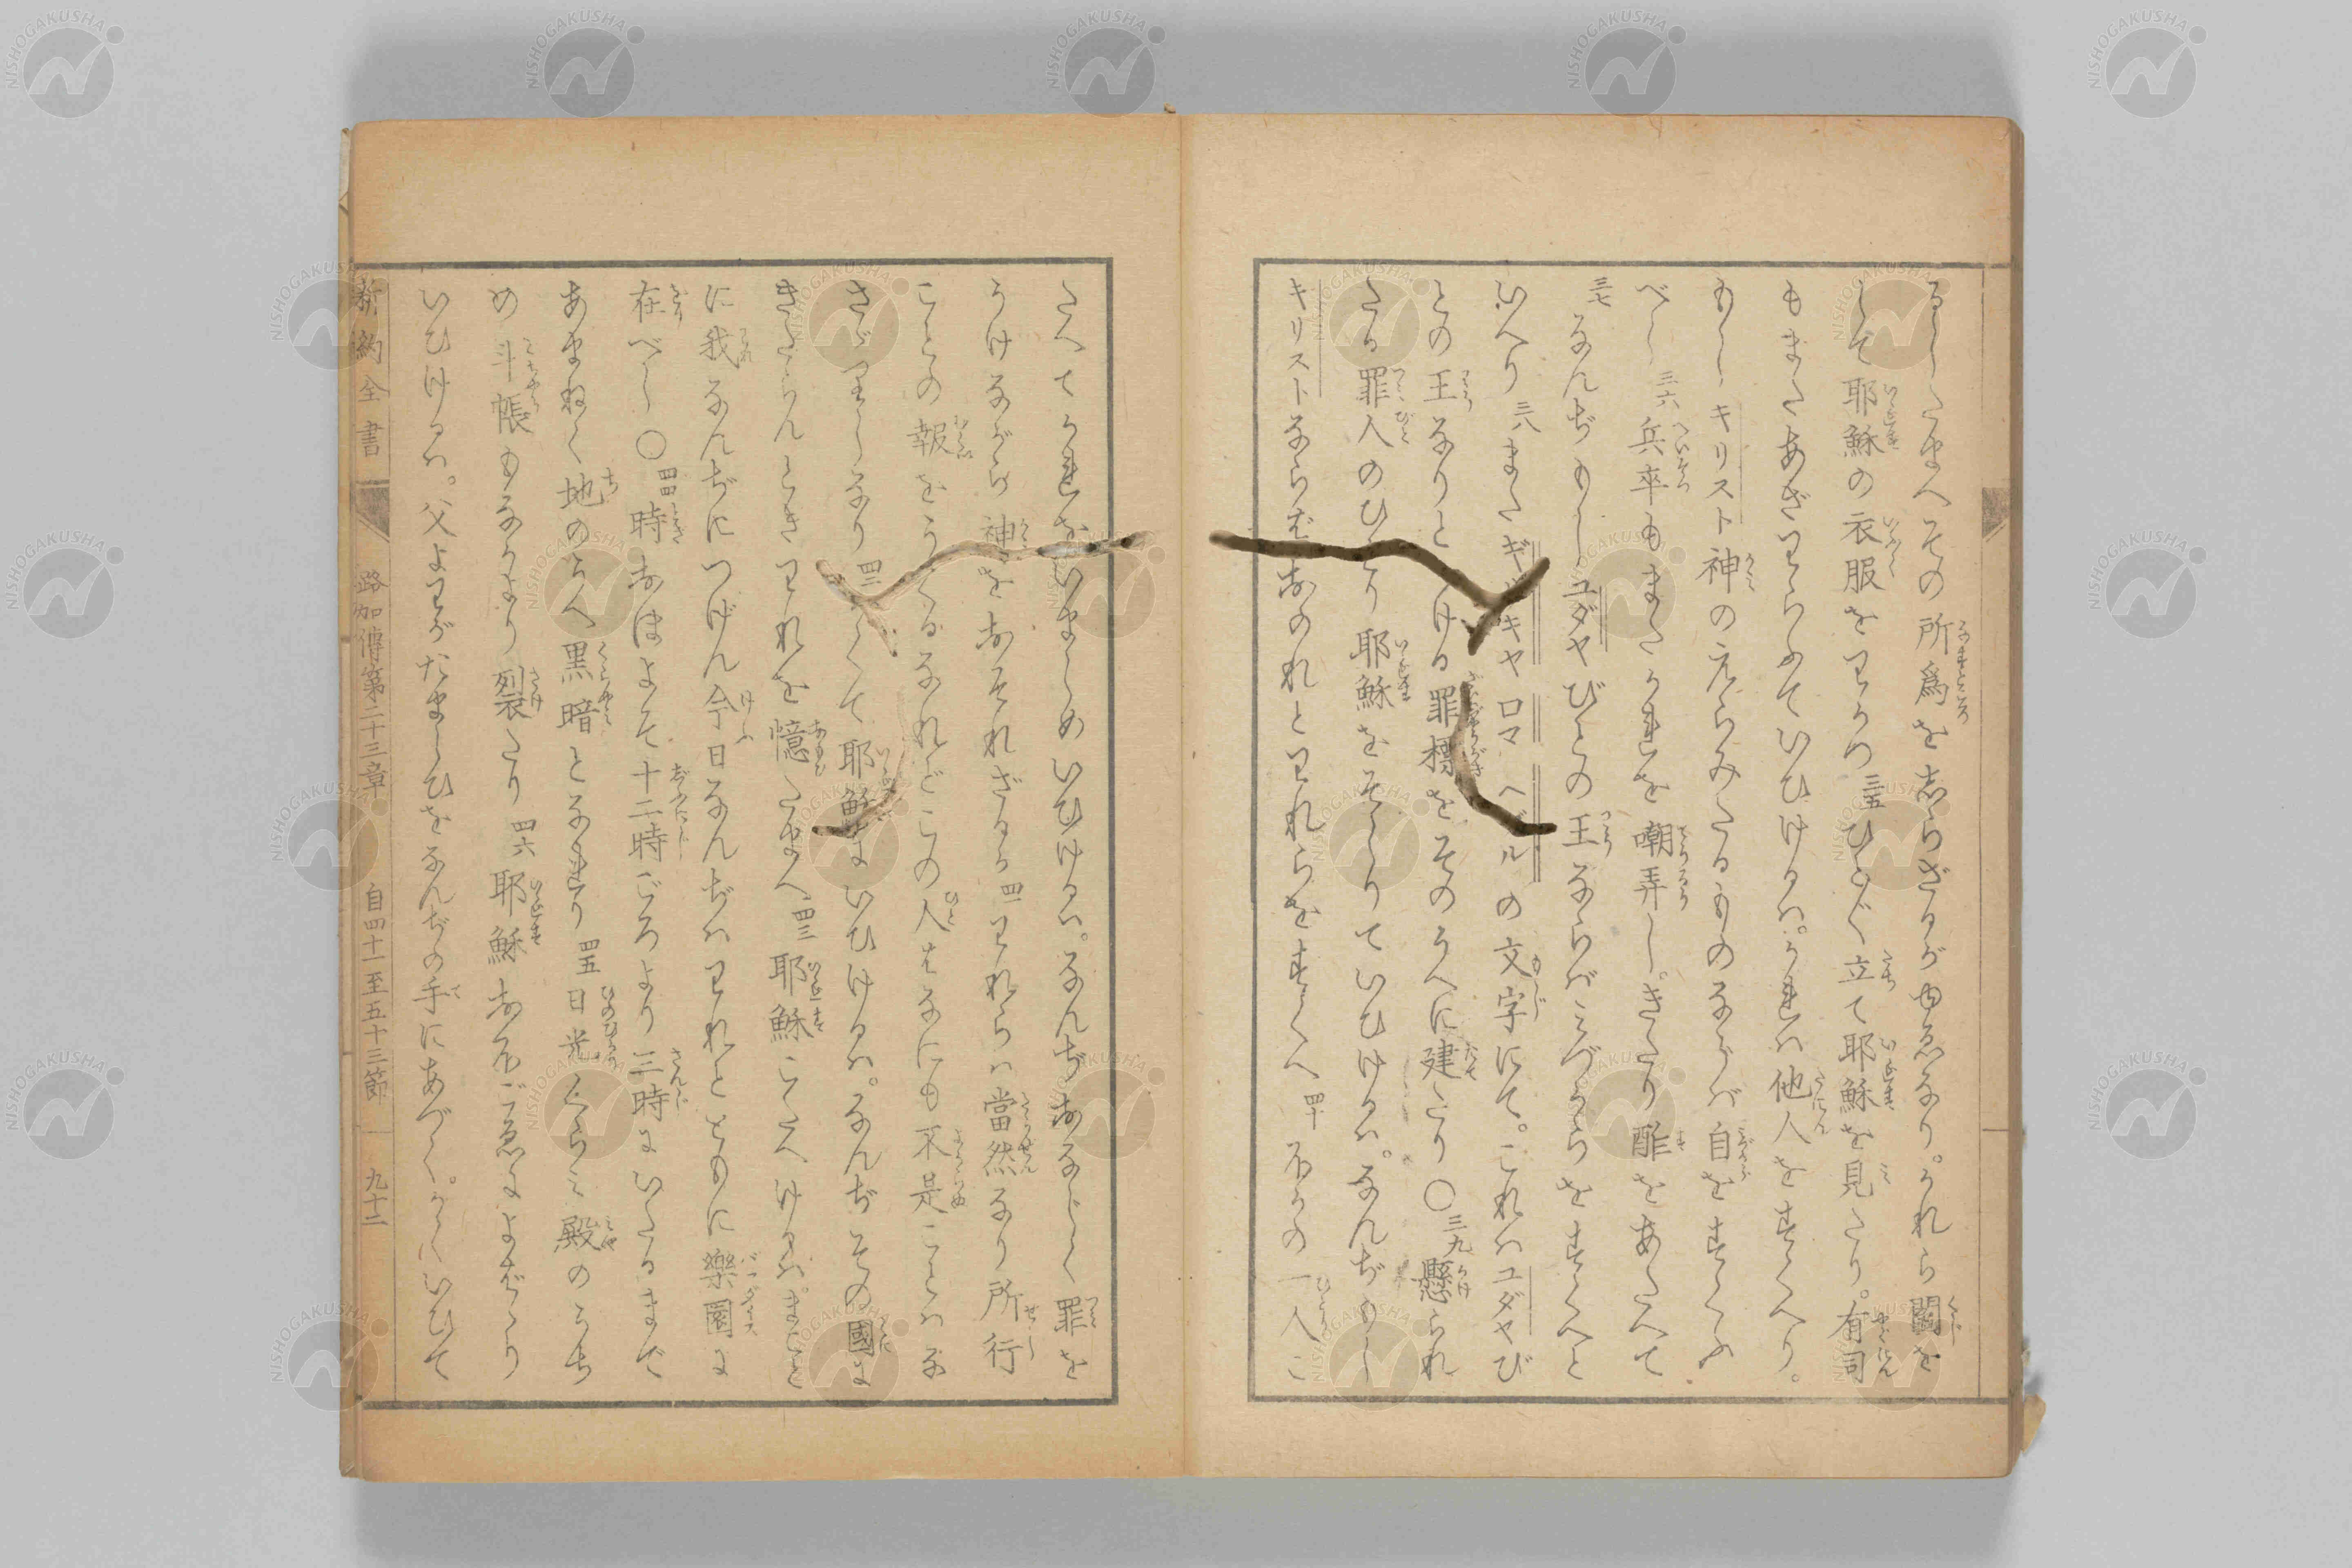 るしたまへその所爲を志らざるがゆゑなり。かれら鬮を
して耶穌の衣服をわかつ三五ひとびと立て耶穌を見たり。有司
もまたあざわらふていひけるハ。かれハ他人をすくへり。
もしキリスト神のえらみたるものならバ自をすくふ
べし三六兵卒もまたかれを嘲弄し。きたり酢をあたへて
三七なんぢもしユダヤびとの王ならバみづからをすくへと
いへり三八またギリキヤ ロマ ヘブルの文字にて。これハユダヤび
との王なりと ける罪標をそのうへに建たり〇三九懸られ
たる罪人のひとり耶穌をそしりていひけるハ。なんぢもし
キリストならばおのれとわれらをすくへ四十ほかの一人こ
たへてかれをいましめいひけるハ。なんぢおなじく罪を
うけながら神をおそれざるか四一われらハ當然なり所行
ことの報をうくるなれどこの人はなにも不是ことハな
さゞりしなり四二 くて耶穌にいひけるハ。なんぢその國に
きたらんときわれを憶たまへ四三耶穌こたへけるハ。まこと
に我なんぢにつげん今日なんぢハわれとともに樂園に
在べし〇四四時おほよそ十二時ごろより三時にいたるまで
あまねく地のうへ黒暗となれり四五日光くらみ殿のうち
の斗帳もなかより裂たり四六耶穌おほごゑによばゝり
いひけるハ。父よわがたましひをなんぢの手にあづく。かくいひて
新約全書 路加傳第二十三章 自四十一至五十三節 九十二
NISHOGAKUSHA